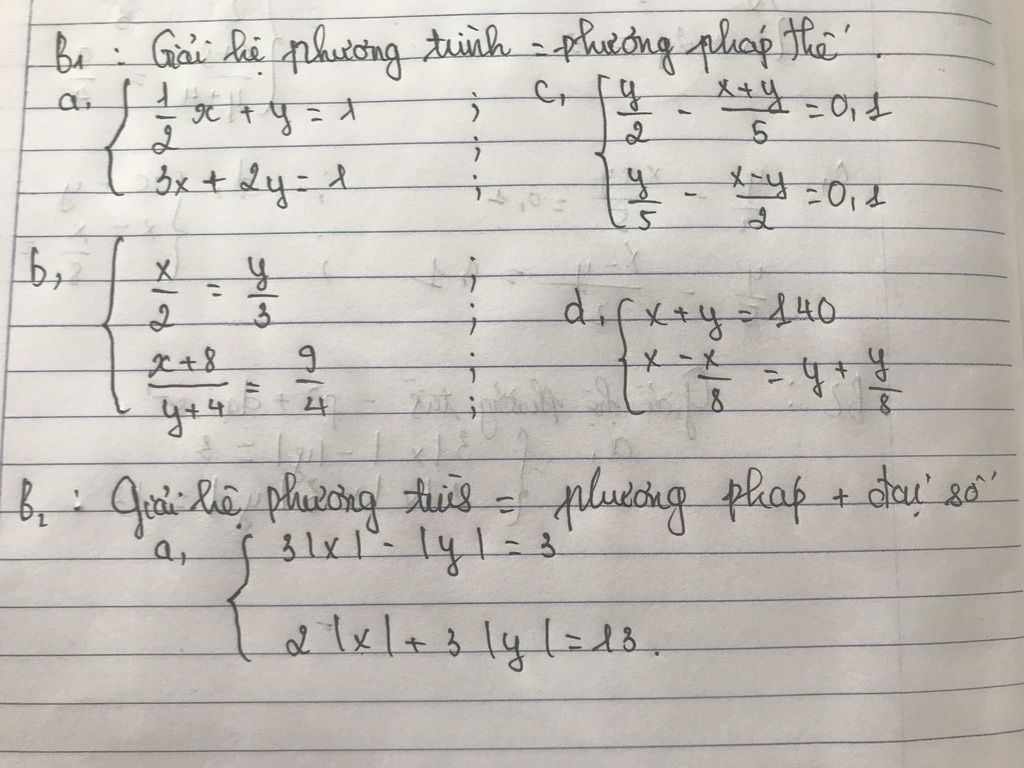 B1 : Giải hệ phương trình = phương pháp thế .
a, { 1/2 x + y = 1 ;
3x + 2y = 1 ;
c, { y/2 - (x+y)/5 = 0,1
y/5 - (x-y)/2 = 0,1
b, { x/2 = y/3 ;
(x+8)/(y+4) = 9/4 ;
d, { x + y = 140
x - x/8 = y + y/8
B2 : Giải hệ phương trình = phương pháp + đại số
a, { 3|x| - |y| = 3
2|x| + 3|y| = 13.